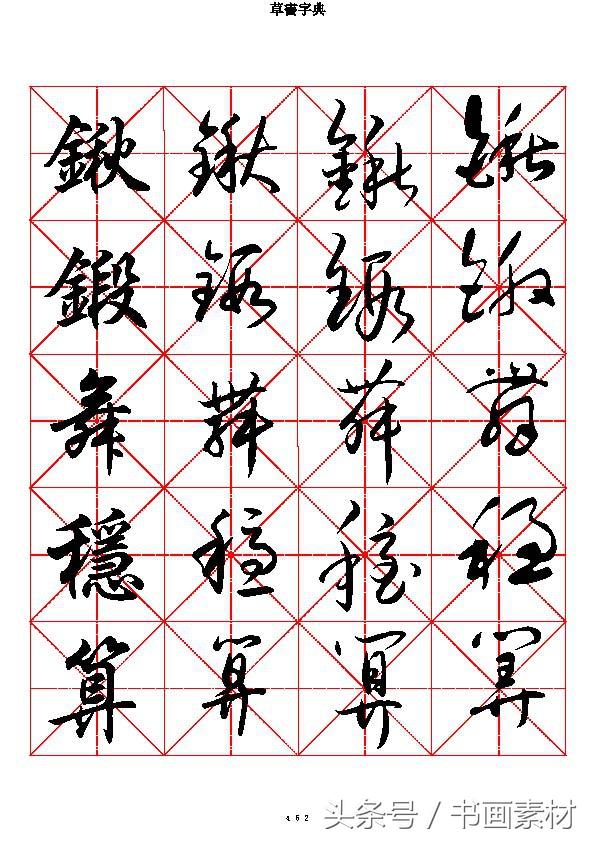 草書字典
鍬 鍬 鍬 鍬
鍛 鍛 鍛 鍛
舞 舞 舞 舞
穩 穩 穩 穩
算 算 算 算
462
头条号 / 书画素材